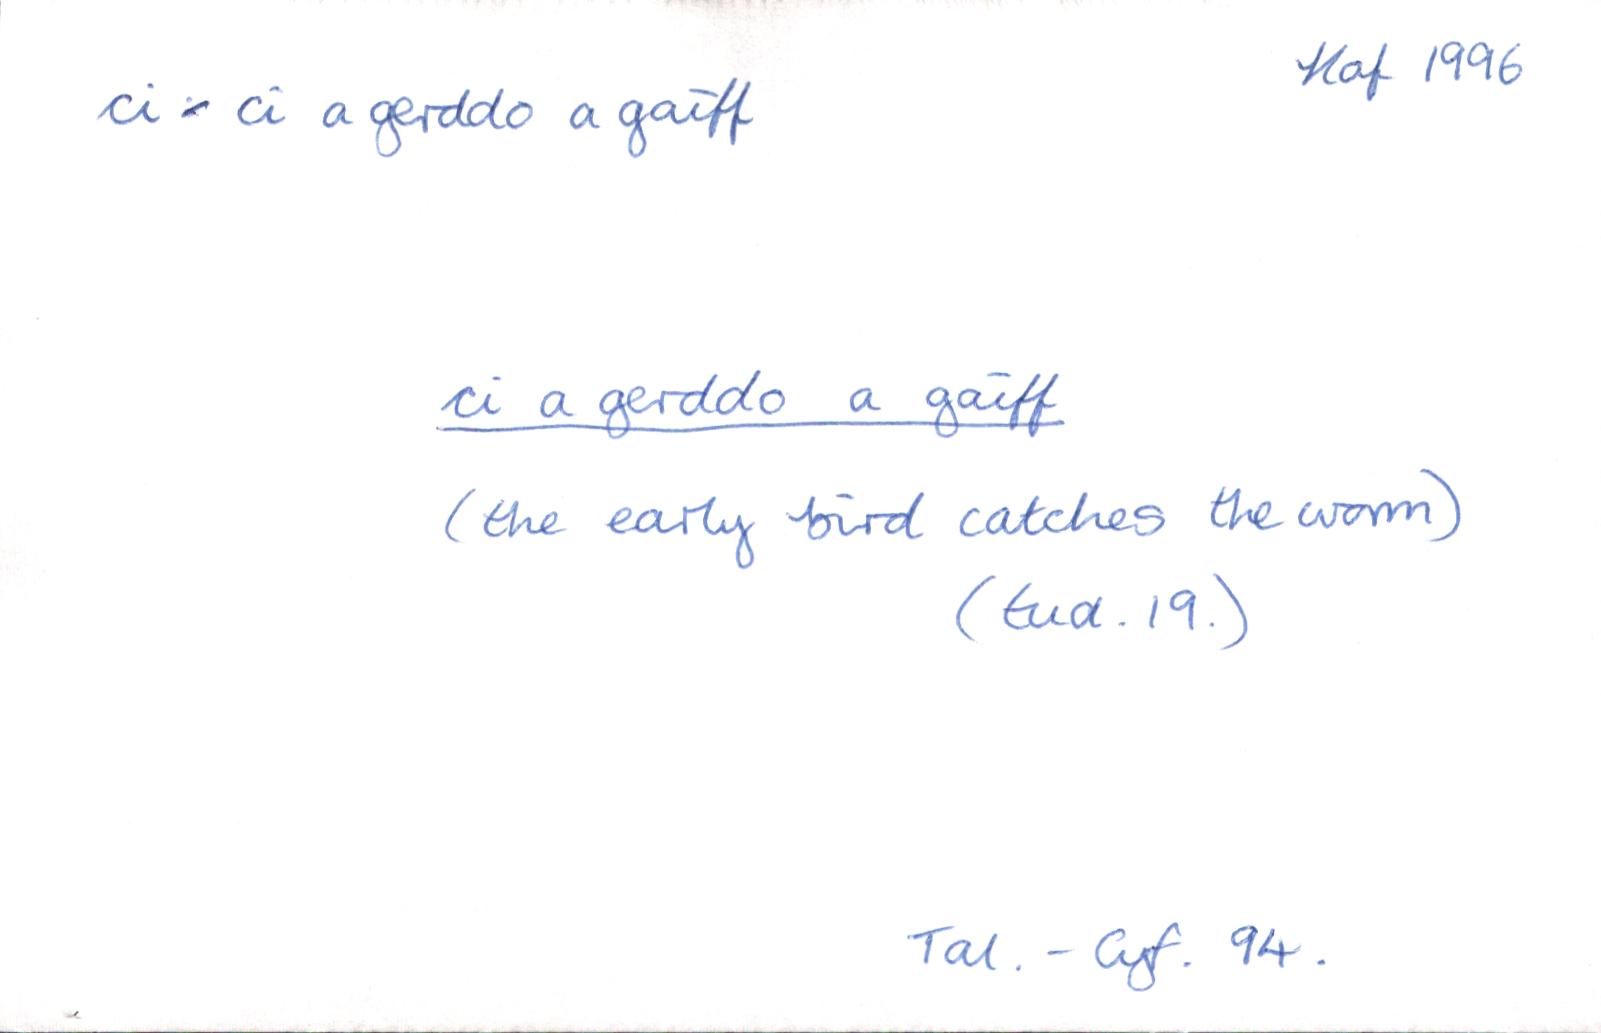 Haf 1996
ci - ci a gerddo a gaiff
ci a gerddo a gaiff
(the early bird catches the worm)
(tud. 19.)
Tal. - Cyf. 94.